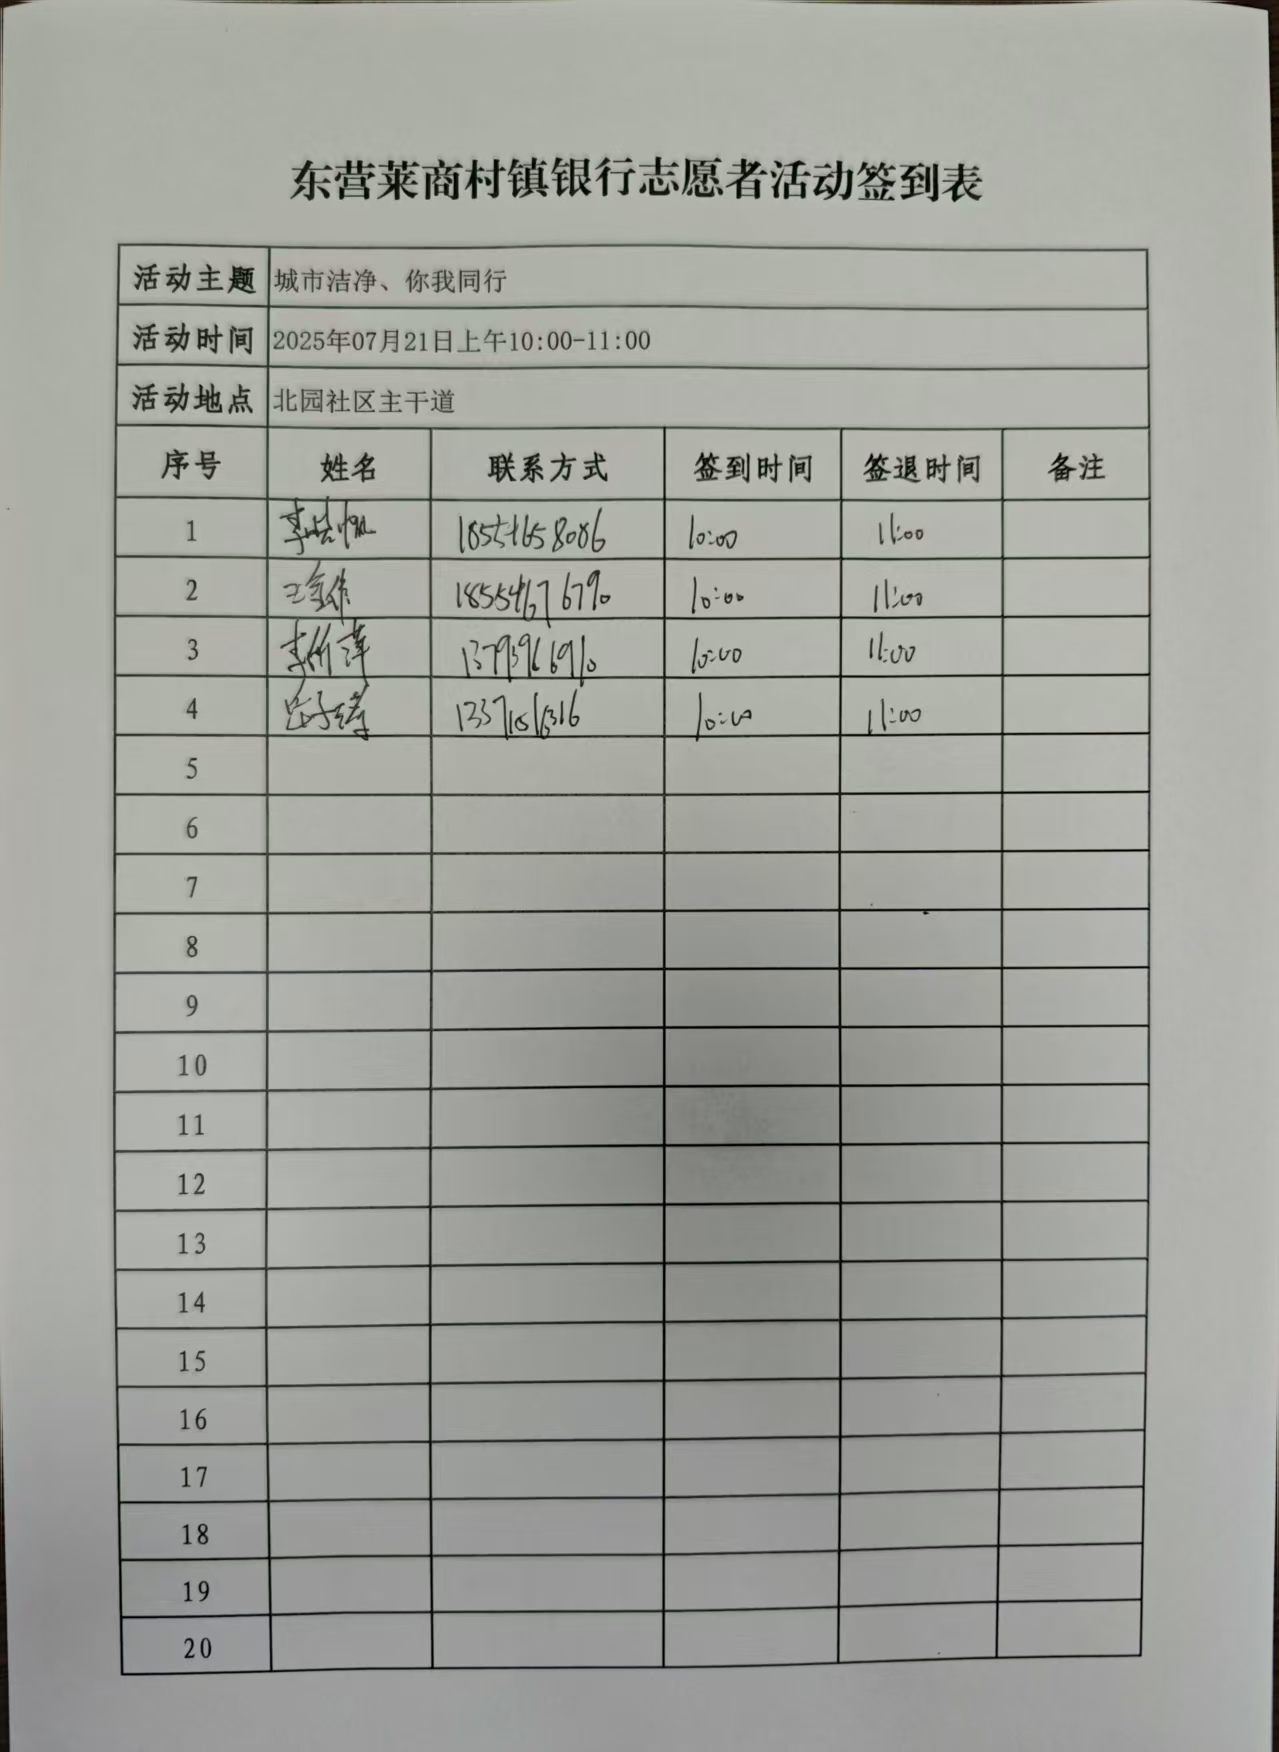 东营莱商村镇银行志愿者活动签到表
活动主题 城市洁净、你我同行
活动时间 2025年07月21日上午10:00-11:00
活动地点 北园社区主干道
序号 姓名 联系方式 签到时间 签退时间 备注
1 18554658086 10:00 11:00
2 18554676790 10:00 11:00
3 13793966910 10:00 11:00
4 10:00 11:00
5
6
7
8
9
10
11
12
13
14
15
16
17
18
19
20